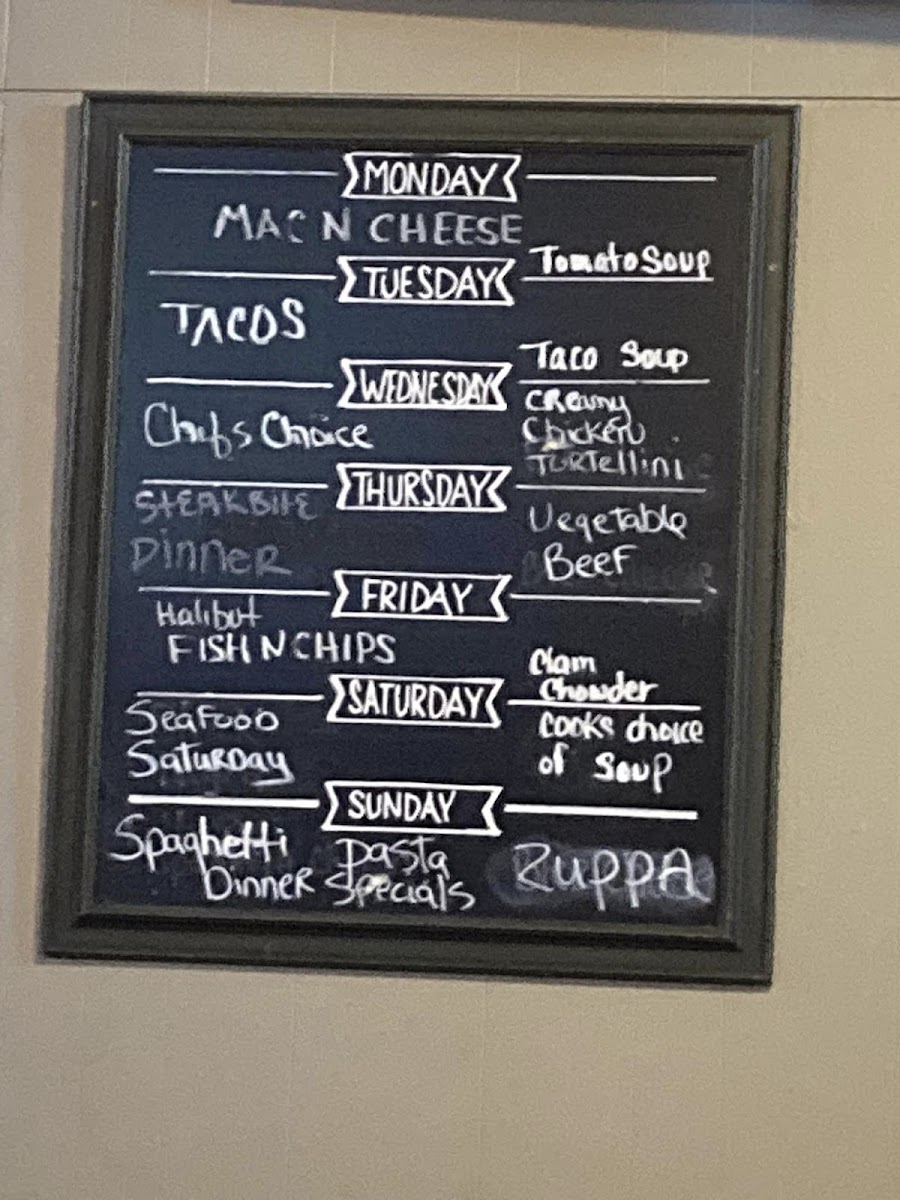 MONDAY
MAC N CHEESE
Tomato Soup
TUESDAY
TACOS
Taco Soup
WEDNESDAY
Chefs Choice
CReamy
Chicken
TORTellini
THURSDAY
STEAK BITE
DinneR
Vegetable
BeeF
FRIDAY
Halibut
FISH N CHIPS
Clam
Chowder
SATURDAY
SeaFood
SatuRDay
Cooks choice
of Soup
SUNDAY
Spaghetti
DinneR
pasta
Specials
ZuppA